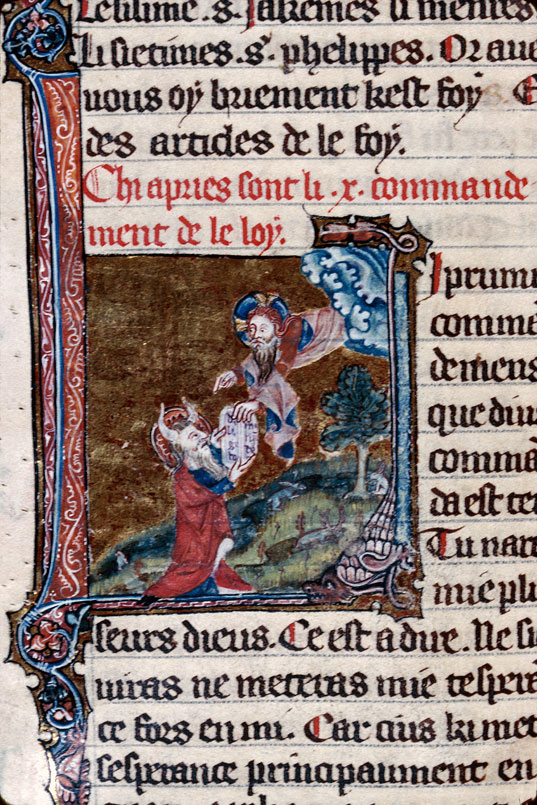 Lesisime .s. Jakemes li menres
Li sietimes .s. phelippes. Or aues
uous oy briement kest foy. E
des articles de le foy.
Chi apries sont li .x. commande
ment de le loy.
I prumi
comme
demens
que dius
comma
da est tex
Tu nare
mie plu
seurs dieus. Ce est a dire. Ne si
uiras ne meteras mie tespera
ce fors en mi. Car cius ki met
sesperance principaument en